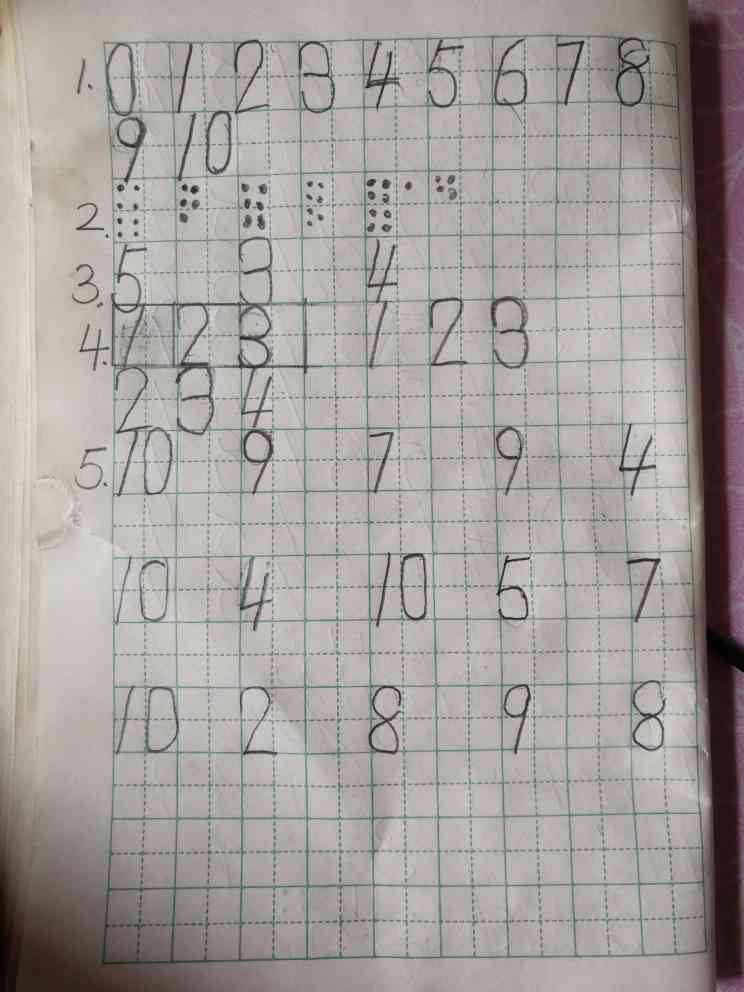 1. 0 1 2 3 4 5 6 7 8
9 10
2.
3. 5 3 4
4. 1 2 3 1 2 3
2 3 4
5. 10 9 7 9 4
10 4 10 5 7
10 2 8 9 8